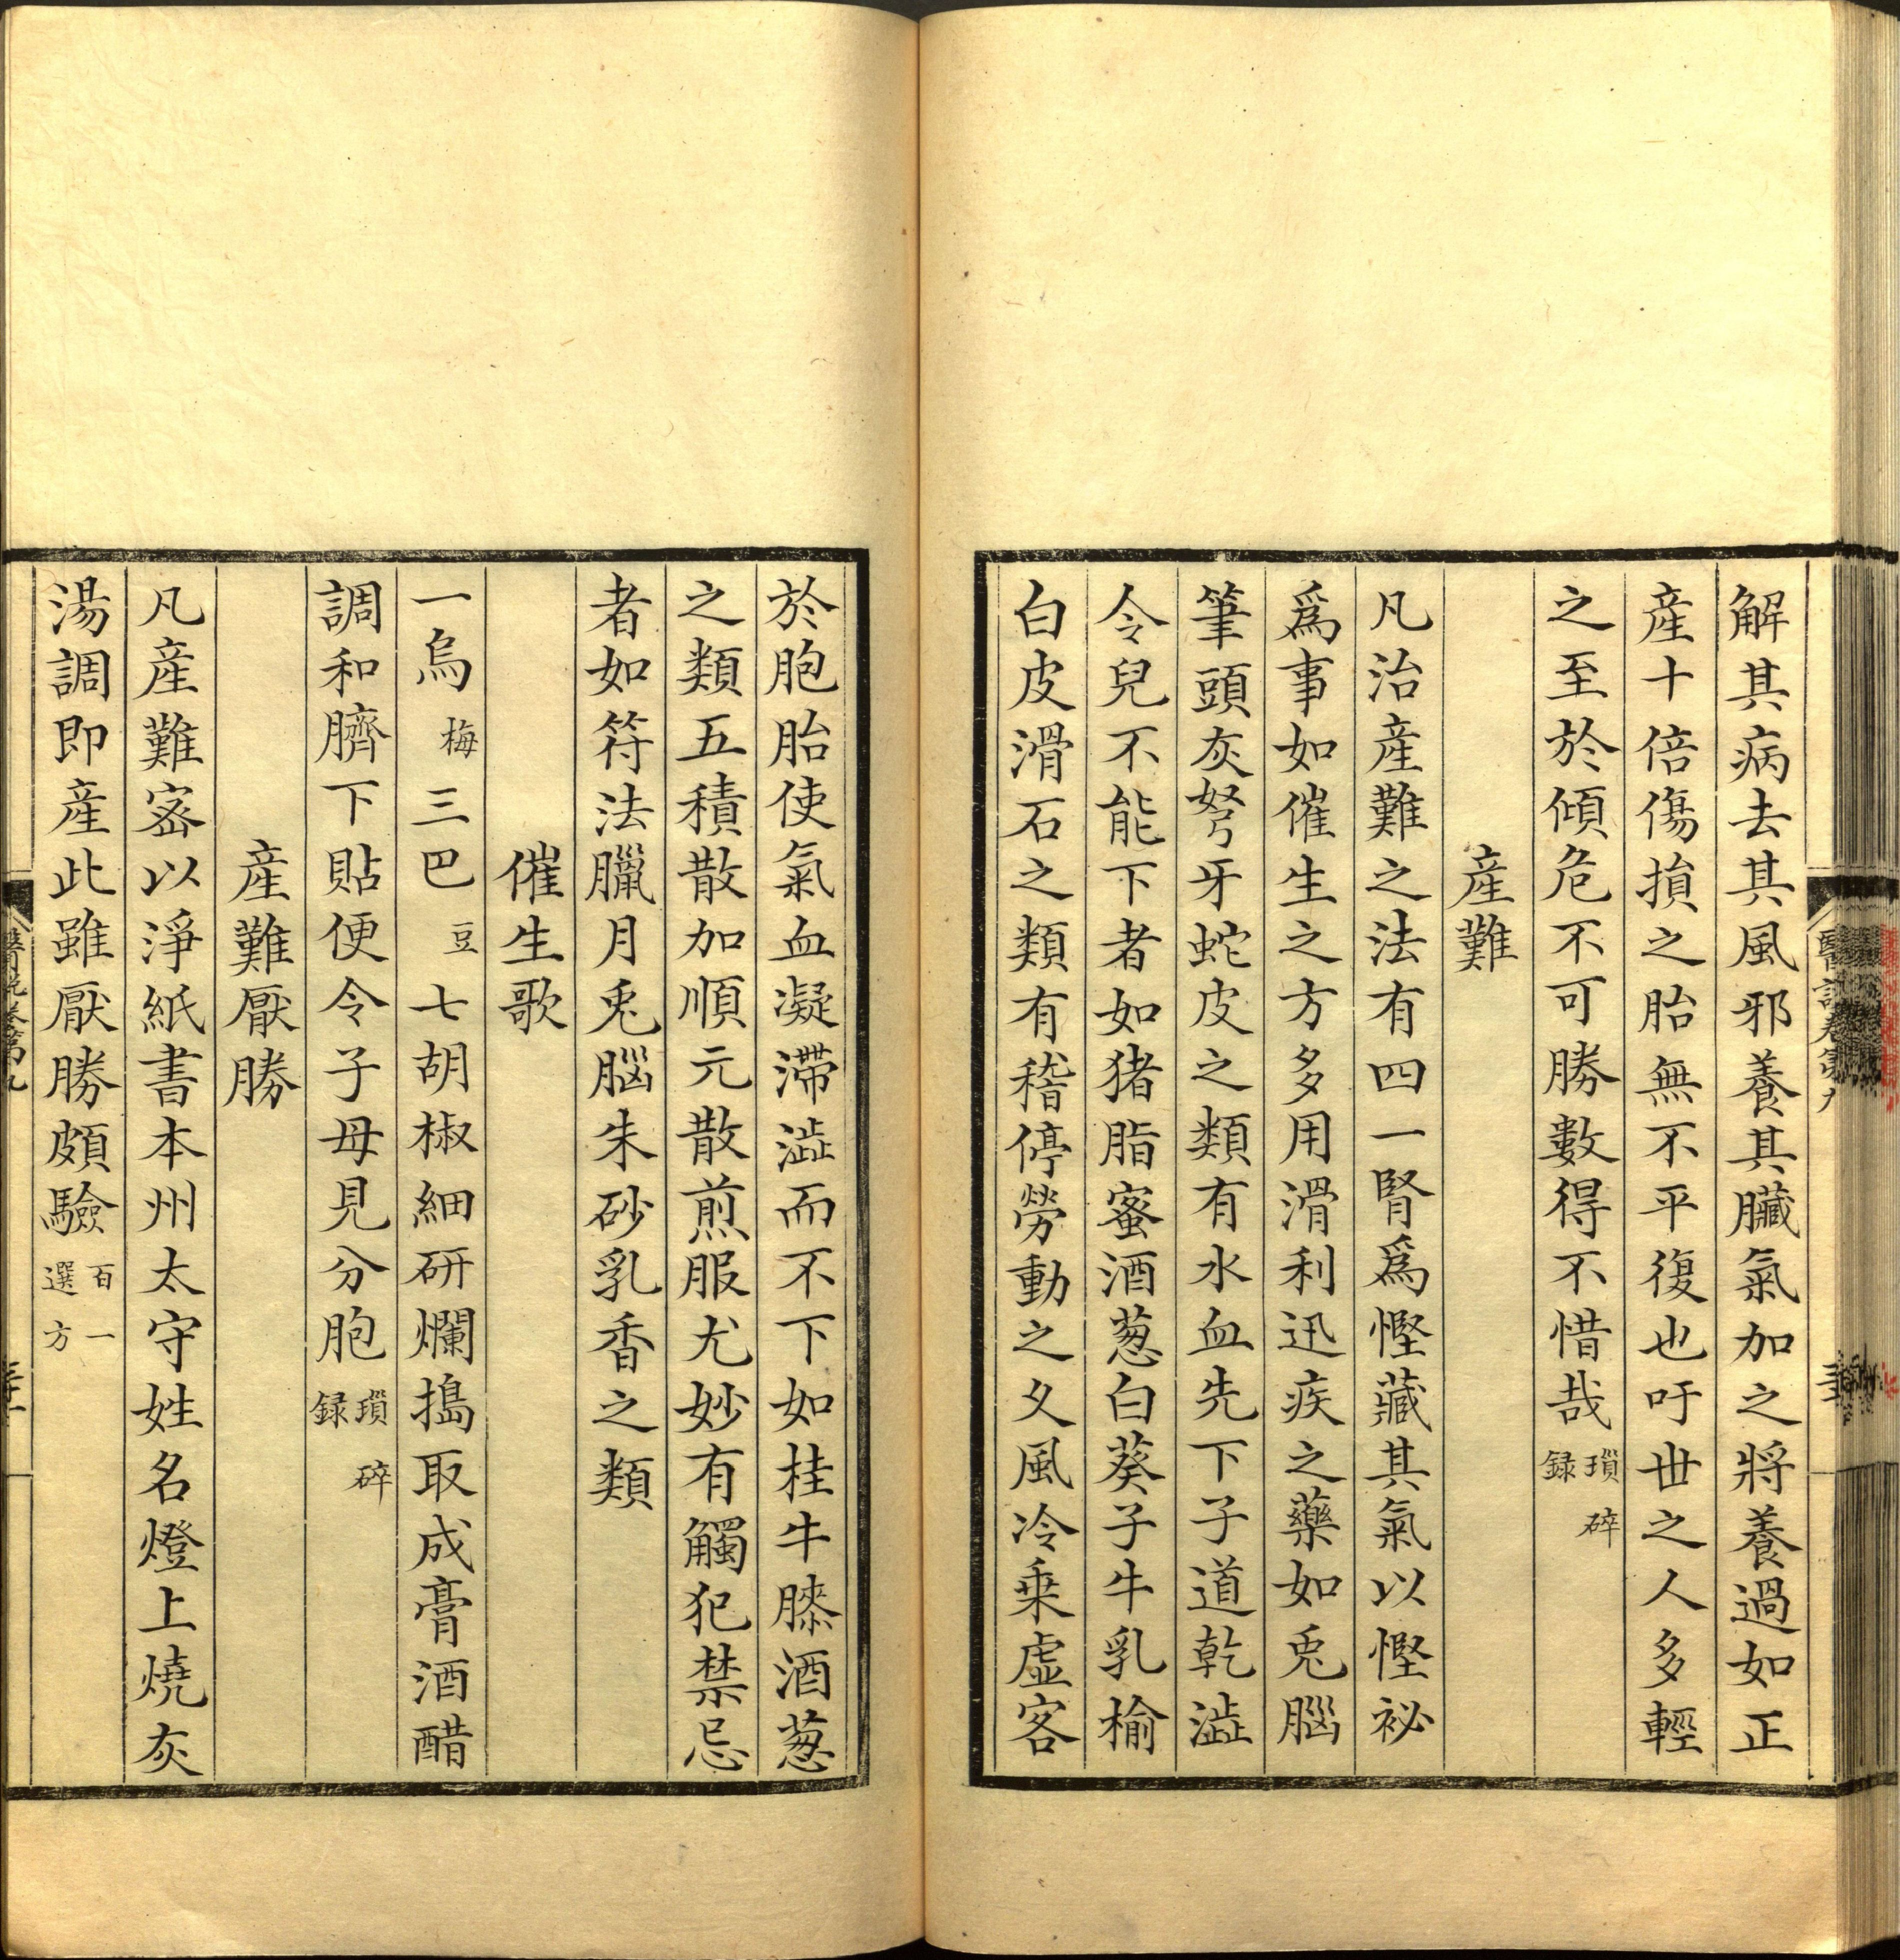 解其病去其風邪養其臟氣加之將養過如正
産十倍傷損之胎無不平復也吁世之人多輕
之至於傾危不可勝數得不惜哉瑣碎録
産難
凡治産難之法有四一腎爲慳藏其氣以慳祕
爲事如催生之方多用滑利迅疾之藥如兎腦
筆頭灰弩牙蛇皮之類有水血先下子道乾澁
令兒不能下者如猪脂蜜酒葱白葵子牛乳榆
白皮滑石之類有稽停勞動之久風冷乗虛客
於胞胎使氣血凝滯澁而不下如桂牛膝酒葱
之類五積散加順元散煎服尤妙有觸犯禁忌
者如符法臘月兎腦朱砂乳香之類
催生歌
一烏梅三巴豆七胡椒細研爛搗取成膏酒醋
調和臍下貼便令子母見分胞瑣碎録
産難厭勝
凡産難宻以淨紙書本州太守姓名燈上燒灰
湯調即産此雖厭勝頗驗百一選方
醫説卷第九